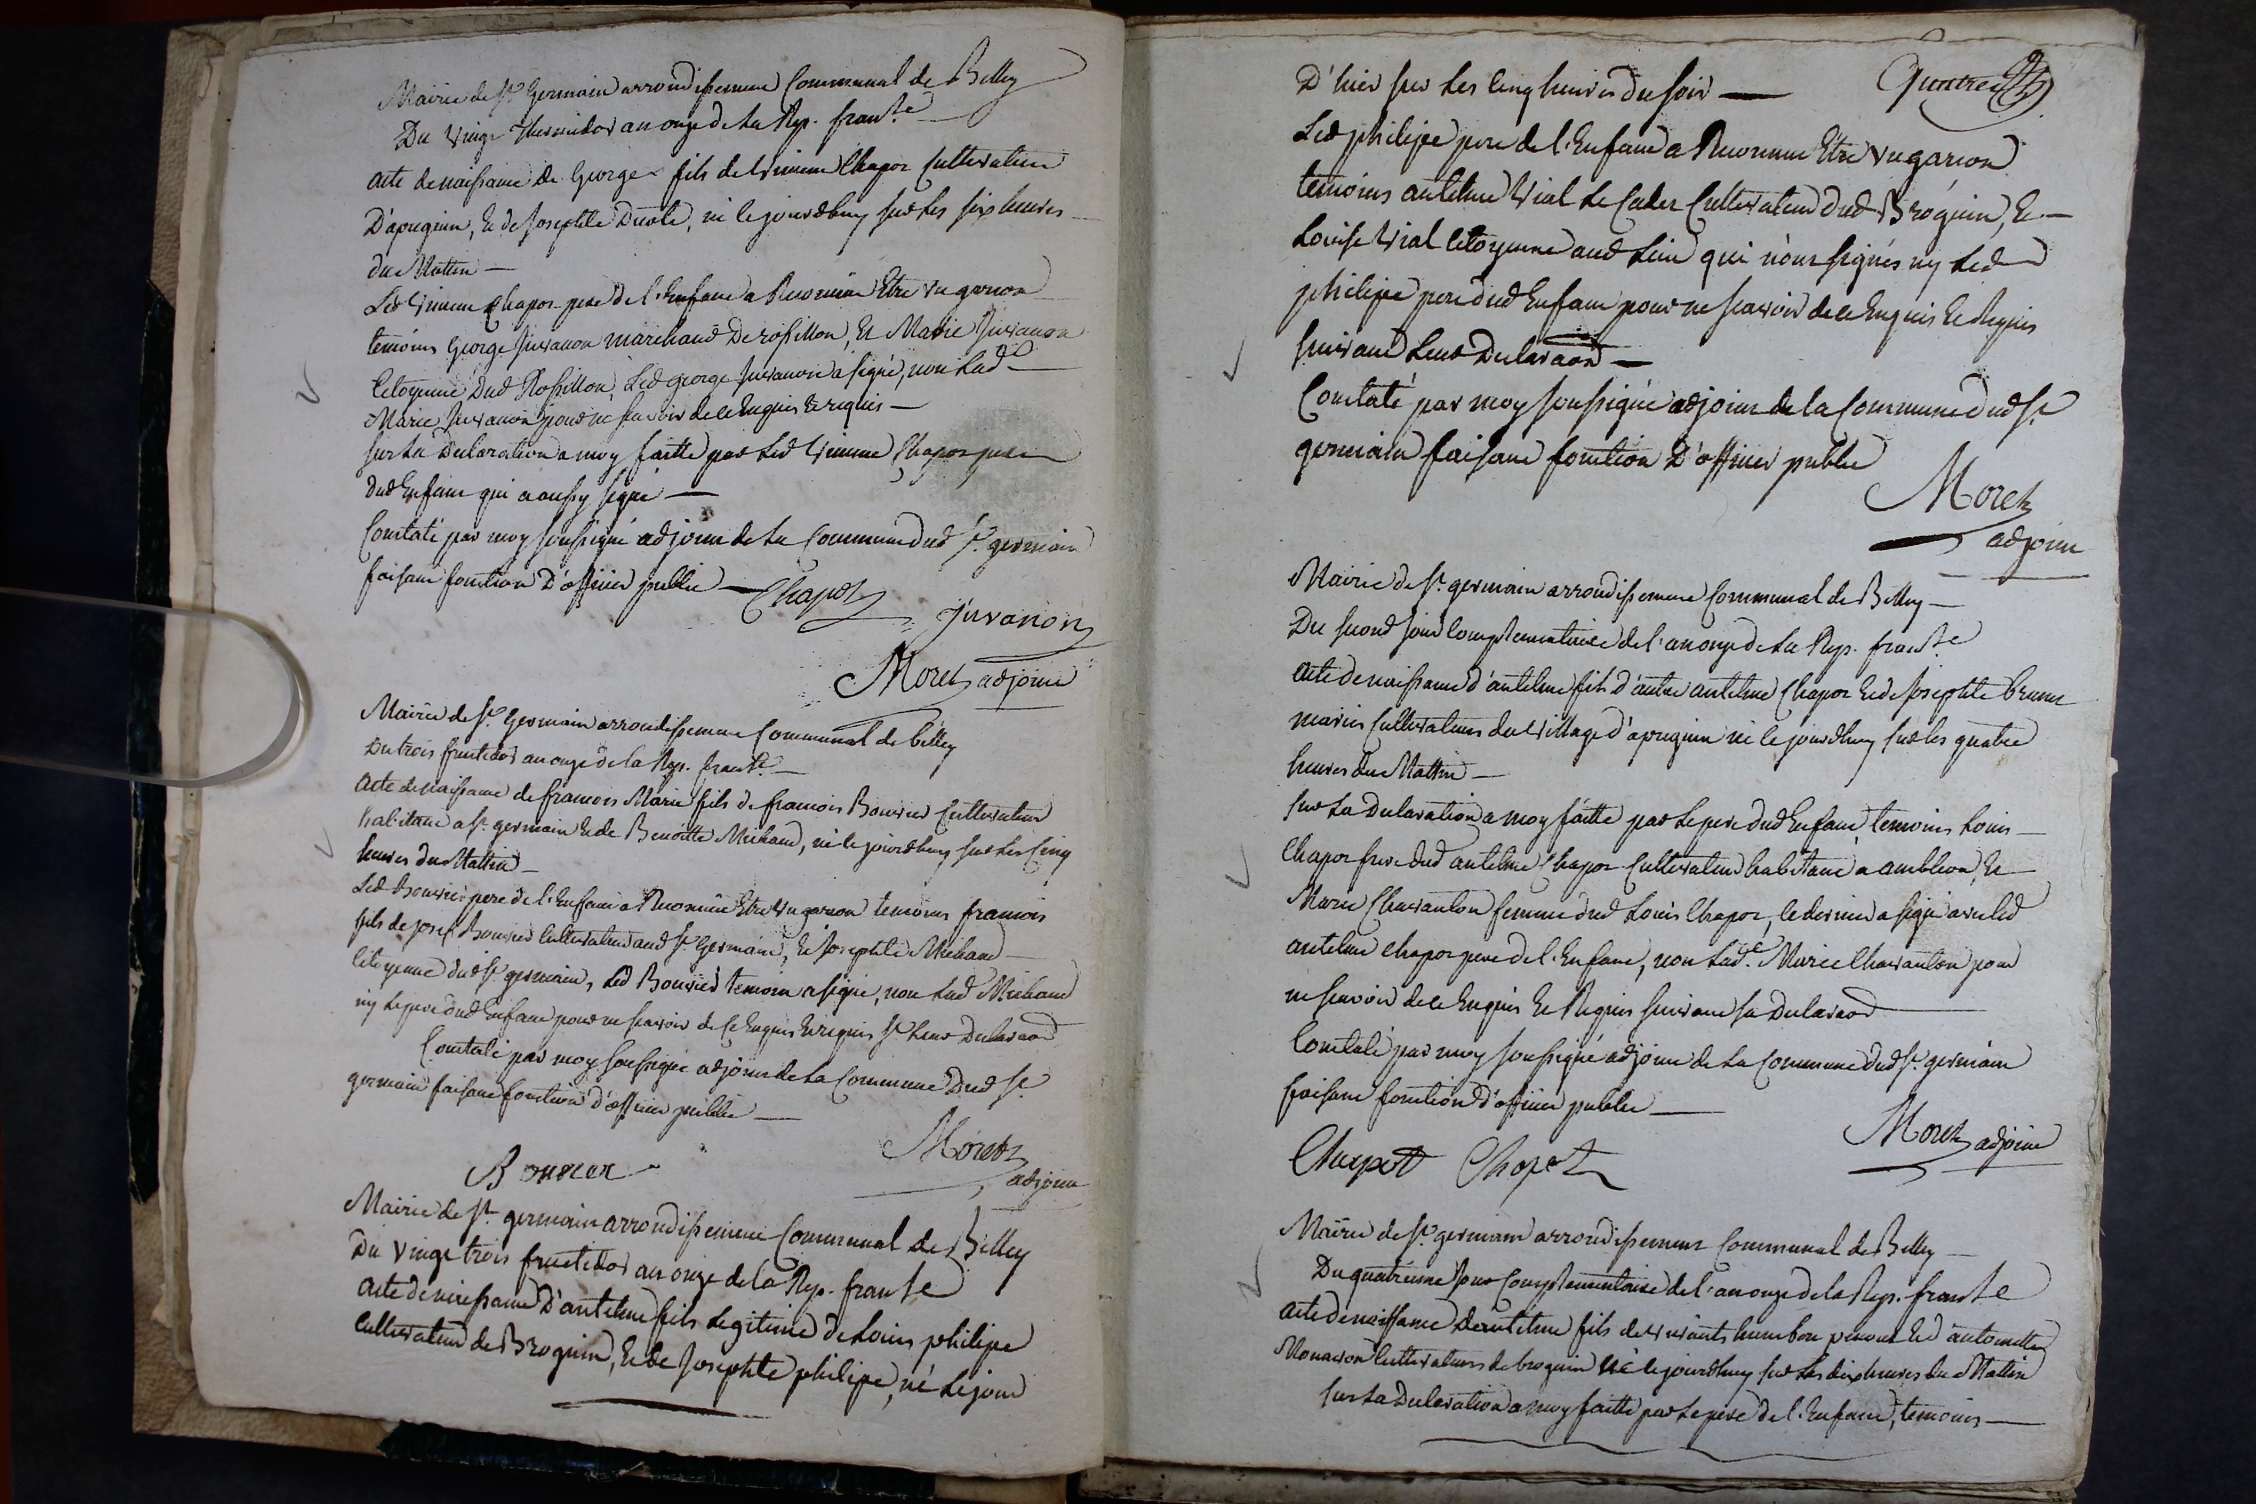 Mairie de St Germain arrondissement Communal de Belley
Du vingt Thermidor an onze de la Rep. franse
acte de naissance de George fils de Vincent Chapot Cultivateur
D'apregnin, et de Josephte Ducote, né le jourdhuy sur les six heures
du Mattin —
Led Vincent Chapot pere de l'enfant a Reconnu Etre un garcon
temoins George Juvanon marchand De rossillon, et Marie Juvanon
Citoyenne dud Rossillon, Led george Juvanon a signé, non Lad
Marie Juvanon pour ne scavoir de ce Enquis et requis —
sur La Declaration a moy faitte par Led Vincent Chapot pere
dud Enfant qui a aussy signé —
Constaté par moy soussigné adjoint de La Commune dud St. germain
faisant fonction D'officier public — Chapot
Juvanon
Moret adjoint
Mairie de St Germain arrondissement Communal de belley
Du trois fructidor an onze de la Rep. franse —
acte de naissance de francois Marie fils de francois Bouvier Cultivateur
habitant a St germain et de Benoitte Michaud, né le jourdhuy sur Les Cinq
heures du Mattin —
Led Bouvier pere de l'Enfant a Reconnu Etre un garcon temoins francois
fils de josef Bouvier Cultivateur aud St Germain, et Josephte Michaud
Citoyenne dud St germain, Led Bouvier temoin a signé, non Lad Michaud
ny Le pere dud Enfant pour ne scavoir de Ce Enquis et requis St Leur Declaraon
Constaté par moy soussigné adjoint de La Commune Dud St
germain faisant fonction d'officier public —
Moret
Bouvier adjoint
Mairie de St germain arrondissement Communal de Belley
Du vingt trois fructidor an onze de la Rep. franse
acte de naissance D'antelme fils Legitime de Louis philipe
Cultivateur de Brognin, et de Josephte philipe, né Le jour
D'hier sur Les Cinq heures du soir —
Led philipe pere de l'Enfant a Reconnu Etre un garcon
temoins antelme Vial Le Cadet Cultivateur dud Brognin, et —
Louise Vial Citoyenne aud Lieu qui n'ont signés ny Led
philipe pere dud Enfant pour ne scavoir de ce Enquis et Requis
suivant Leur Declaraon —
Constaté par moy soussigné adjoint de la Commune dud St
germain faisant fonction D'officier public
Moret
adjoint
Mairie de St. germain arrondissement Communal de Belley —
Du second jour Complementaire de l'an onze de La Rep. franse
acte de naissance d'antelme fils d'autre antelme Chapot et de Josephte brunet
mariés Cultivateurs du Village d'apregnin né le jourdhuy sur les quatre
heures du Mattin —
sur La Declaration a moy faitte par Le pere dud Enfant, temoins Louis —
Chapot frere dud antelme Chapot Cultivateur habitant a ambleon, et
Marie Charanton femme dud Louis Chapot, le dernier a signé avec led
antelme chapot pere de l'Enfant, non Lade. Marie Charanton pour
ne scavoir de ce Enquis et Requis suivant sa Declaraon
Constaté par moy soussigné adjoint de La Commune dud St. germain
faisant fonction d'officier public —
Moret adjoint
Chapot Chapot
Mairie de St germain arrondissement Communal de Belley —
Du quatrieme jour Complementaire de l'an onze de la Rep. franse
acte de naissance de antelme fils de vivants humbert penout et d'antoinette
Monavon Cultivateurs de brognin né le jourdhuy sur Les dix heures du Mattin
sur La Declaration a moy faitte par Le pere de l'Enfant, temoins —